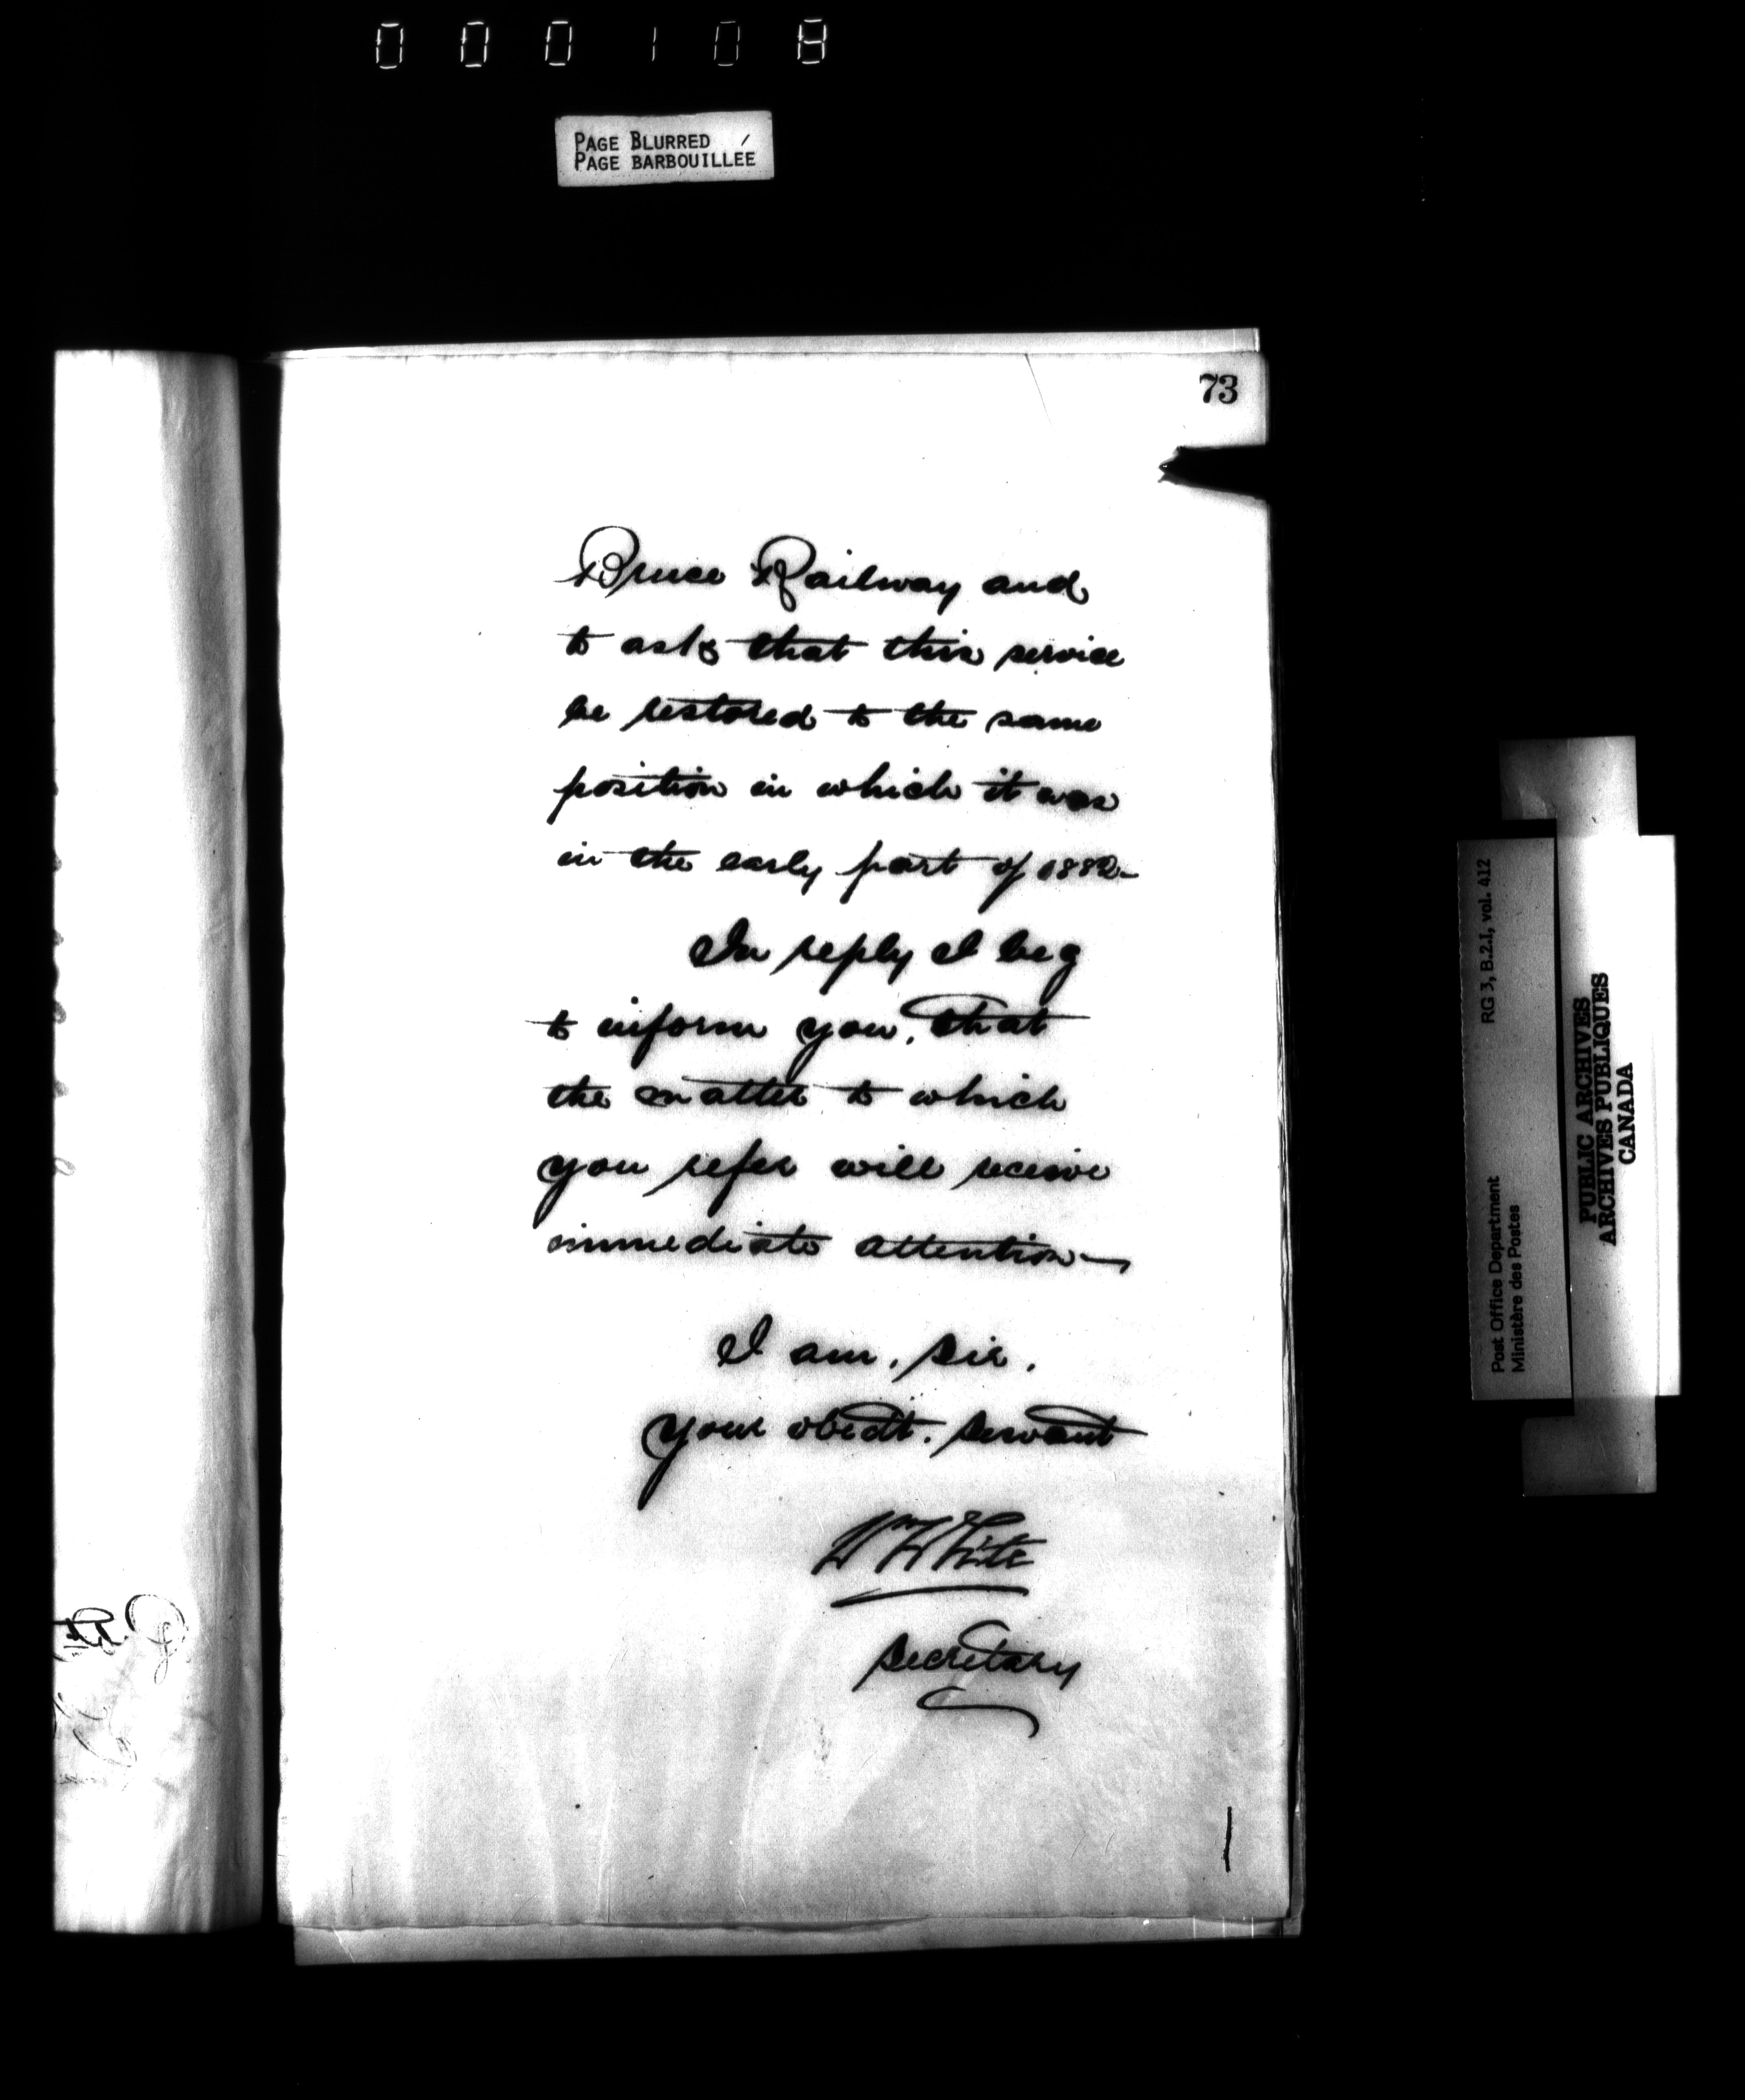 000108
PAGE BLURRED
PAGE BARBOUILLÉE
73
Bruce Railway and
to ask that this service
be restored to the same
position in which it was
in the early part of 1882-
In reply I beg
to inform you, that
the matter to which
you refer will receive
immediate attention—
I am, Sir,
Your obedt. Servant
Wm White
Secretary
Post Office Department
Ministère des Postes
RG 3, B.2.I, vol. 412
PUBLIC ARCHIVES
ARCHIVES PUBLIQUES
CANADA